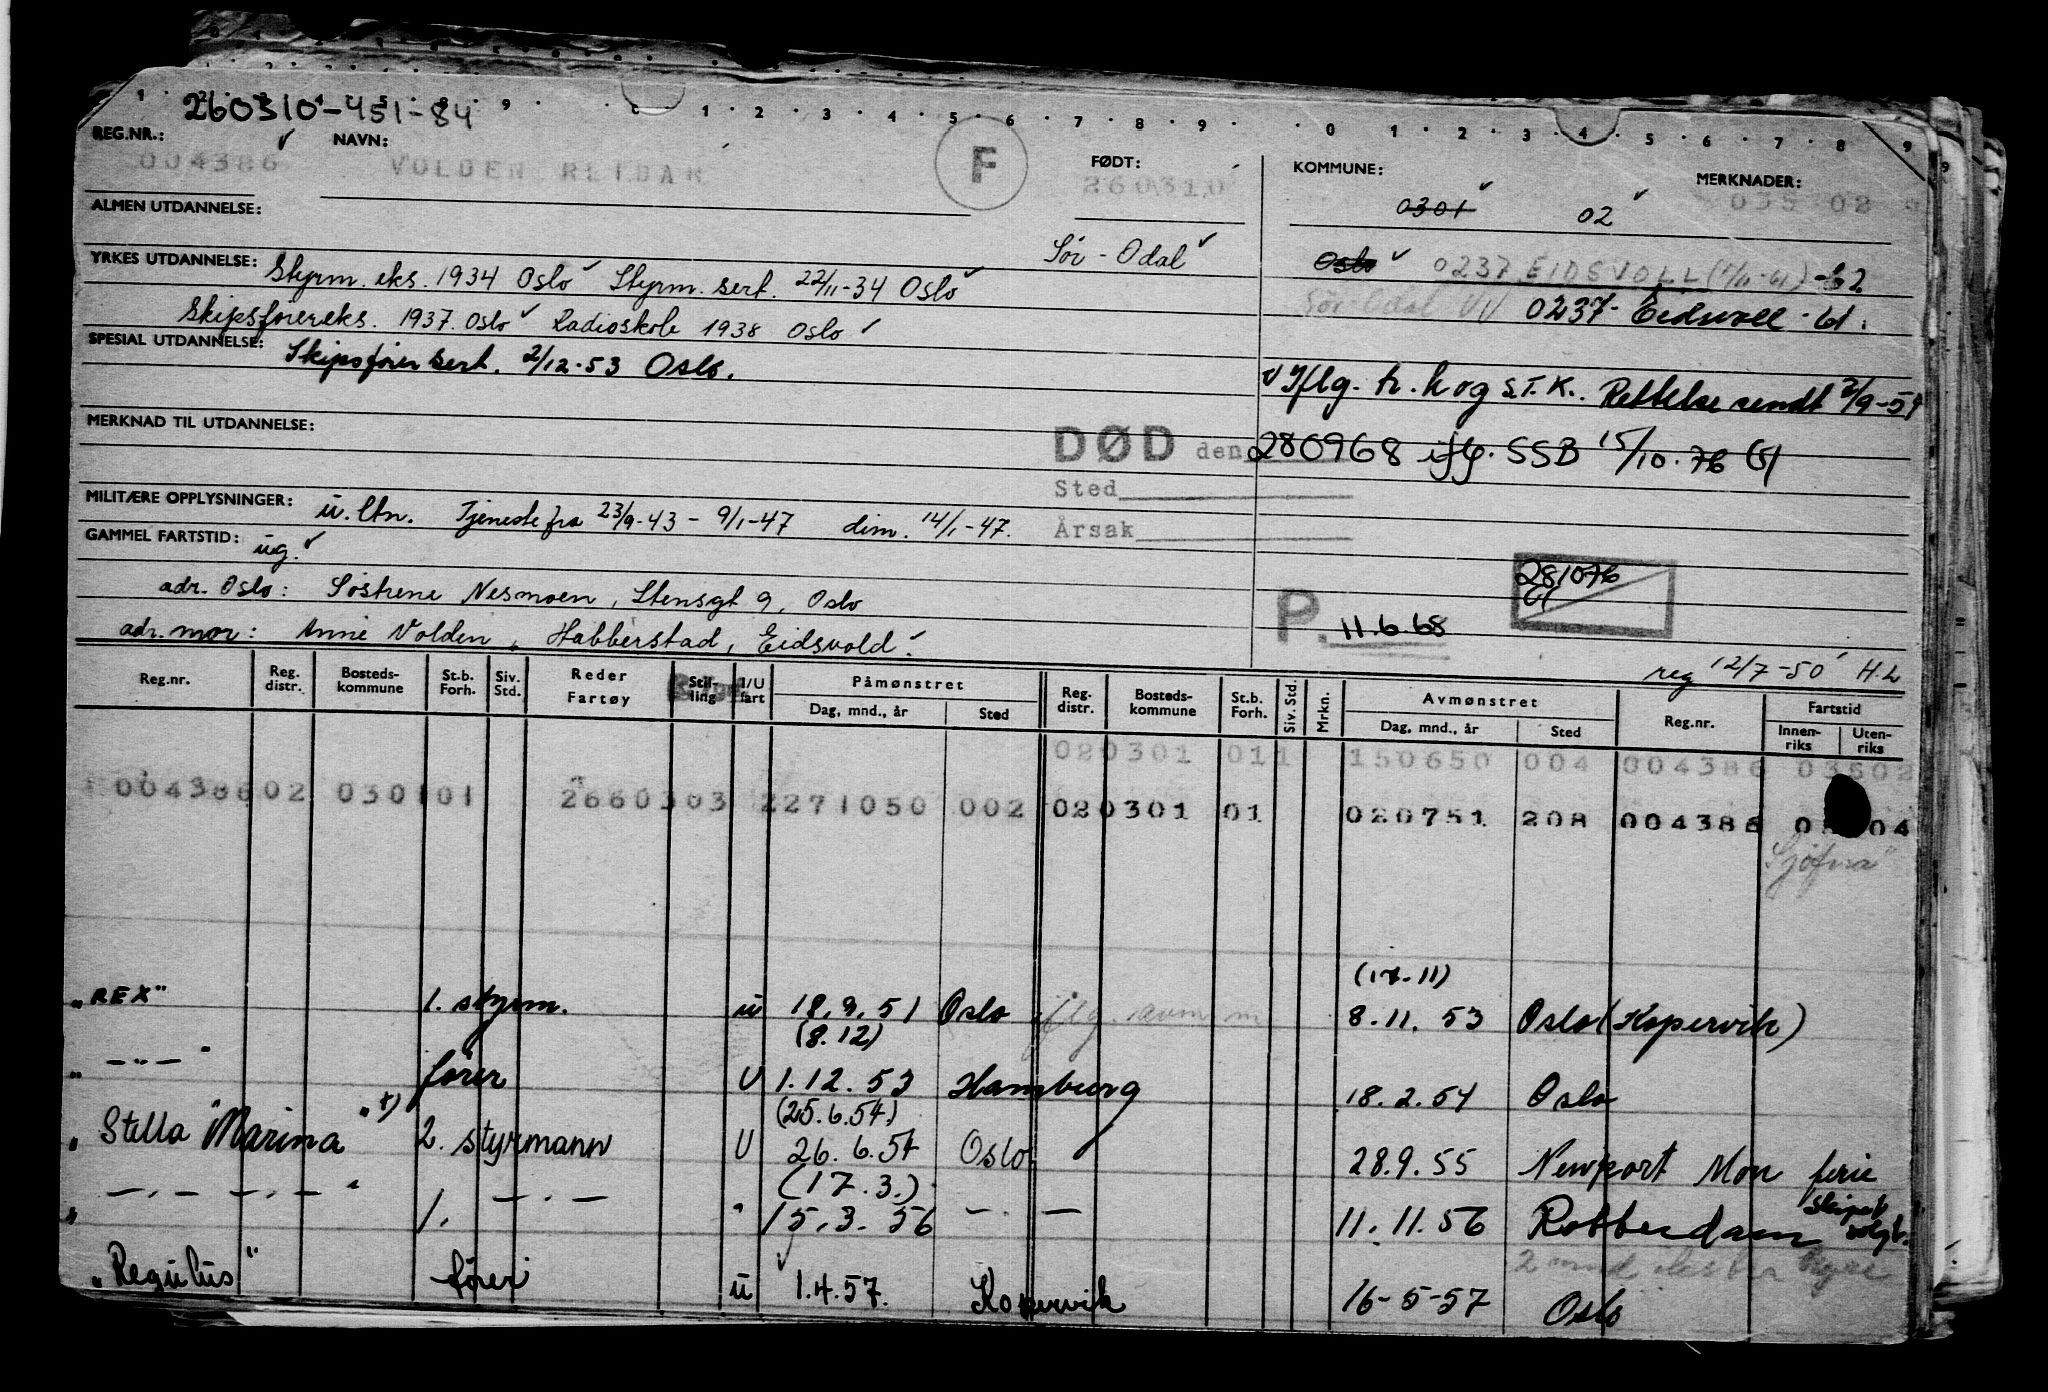 260310-451-84
REG.NR.: NAVN: FØDT: KOMMUNE: MERKNADER:
004386 VOLDEN REIDAR F 260310 035 02
0301 02
ALMEN UTDANNELSE:
Sør-Odal Oslo 0237 EIDSVOLL
YRKES UTDANNELSE: Styrm. eks. 1934 Oslo Styrm. sert. 22/11-34 Oslo
Sør-Odal 0237 Eidsvoll
Skipsførereks. 1937. Oslo Radioskole 1938 Oslo
SPESIAL UTDANNELSE: Skipsfører sert. 2/12-53 Oslo.
Iflg. tr. k og S.T.K. Rettelse sendt 2/9-54
MERKNAD TIL UTDANNELSE:
DØD den 280968 iflg. SSB 15/10.76
Sted
MILITÆRE OPPLYSNINGER: u. ltn. Tjeneste fra 23/9-43 - 9/1-47 dim. 14/1-47.
Årsak
GAMMEL FARTSTID: ug.
281076
adr. Oslo: Søstrene Nesmoen, Stensgt 9, Oslo
P. 11.6.68
adr. mor: Anne Volden, Habberstad, Eidsvold.
reg 12/7-50 H.L
Reg.nr. Reg. distr. Bosteds-kommune St.b. Forh. Siv. Std. Reder Fartøy Stil-ling I/U fart Påmønstret Dag, mnd., år Sted Reg. distr. Bosteds-kommune St.b. Forh. Siv. Std. Mrkn. Avmønstret Dag, mnd., år Sted Reg.nr. Fartstid Innen-riks Uten-riks
020301 011 150650 004 004386 03502
00438602 030101 2660303 2271050 002 020301 01 020751 208 004386 04
"Sjøfna"
(17.11)
"REX" 1. styrm. u 18.9.51 Oslo iflg. 8.11.53 Oslo (Kopervik)
(8.12)
" -"- " fører U 1.12.53 Hamburg 18.2.54 Oslo
(25.6.54)
" Stella Marina " †) 2. styrmann U 26.6.54 Oslo 28.9.55 Newport Mon ferie
(17.3.)
" -.- -.- " 1. -.- " 15.3.56 -.- 11.11.56 Rotterdam skipet solgt.
2 mnd
"Regulus" fører u 1.4.57. Kopervik 16-5-57 Oslo